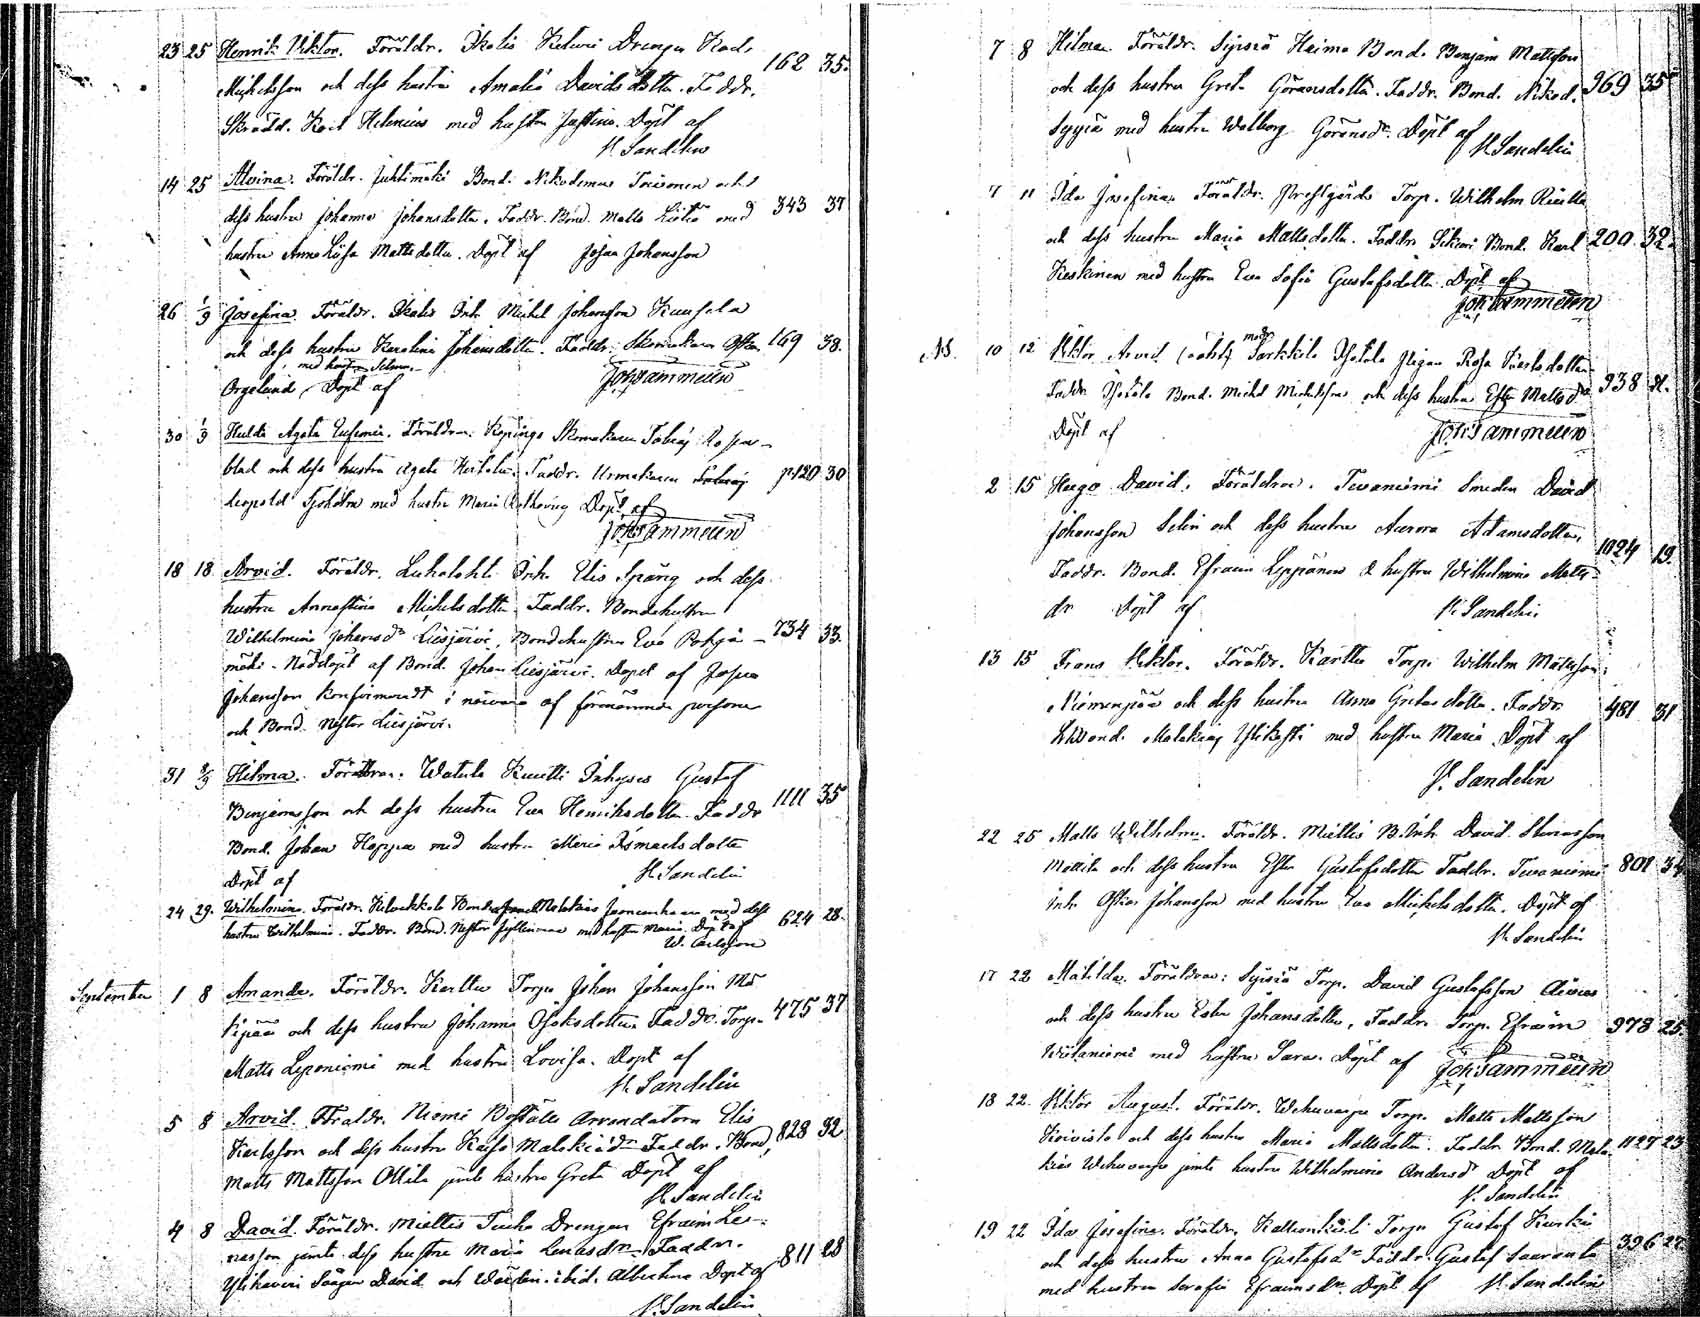 23 25 Henrik Viktor. Föräldr. Ikalis Keturi Drengen Karl 162 35.
Michelsson och dess hustru Amalia Davidsdotter. Faddr.
Skrädd. Karl Helenius med hustru Justina. Döpt af
Sandelin
14 25 Alvina. Föräldr. Juhtimäki Bond. Nikodemus Toivonen och
dess hustru Johanna Johansdotter. Faddr. Bond. Matts med 343 37
hustru Anna Lisa Mattsdotter. Döpt af Josua Johansson
26 1/9 Josefina. Föräldr. Ikalis Inh. Michel Johansson Kuusela
och dess hustru Karolina Johansdotter. Faddr. Skomakaren Oskar 169 38.
med hustr Selma.
Orgelund Döpt af Joh. Tammelin
30 1/9 Hulda Agata Eufemia. Föräldrar. Köpings Skomakaren
blad och dess hustru Agata. Faddr. Urmakaren p. 120 30
Leopold Sjöholm med hustru Maria Döpt af
Joh. Tammelin
18 18 Arvid. Föräldr. Luhalahti Inh. Elis Spång och dess
hustru Annastina Michelsdotter. Faddr. Bondehustru
Wilhelmina Johansdr Liesjärvi, Bondehustru Eva Pohja- 734 33.
mäki. Nöddöpt af Bond. Johan Liesjärvi. Döpt af Josua
Johansson Konfirmeradt i närvaro af förenämnda personer
och Bond. Nestor Liesjärvi.
31 8/9 Hilma. Föräldrar. Watula Knutti Inhyses Gustaf
Benjamsson och dess hustru Eva Henriksdotter. Faddr. 1111 35
Bond. Johan Hoppu med hustru Maria Ismaelsdotter
Döpt af Sandelin
24 29. Wilhelmina. Föräldr. Kilvakkala Bonden Malakias med dess 624 28.
hustru Wilhelmina. Faddr. Bond. Nestor med hustru Maria. Döpt af
W. Carlsson
September 1 8 Amanda. Föräldr. Karttu Torp. Johan Johansson
och dess hustru Johanna Faddr. Torp. 475 37
Matts Leponiemi med hustru Lovisa. Döpt af
Sandelin
5 8 Arvid. Föräldr. Niemi Boställs Arrendatorn Elis
Karlsson och dess hustru Kaisa Malakiasdr Faddr. Bond. 828 32
Matts Mattsson Ollila jemte hustru Greta Döpt af
Sandelin
4 8 David. Föräldr. Miettis Tuuha Drengen Efraim Le-
nasson jemte dess hustru Maria Faddr. 811 28
Ylihaveri Sågaren David och ibid. Albertina Döpt af
Sandelin
7 8 Hilma Föräldr. Sipsiä Heimo Bond. Benjam Mattsson
och dess hustru Greta Göransdotter. Faddr. Bond. Nikod. 969 35
Sipsiä med hustru Walborg Göransdr. Döpt af
Sandelin
7 11 Ida Josefina Föräldr. Prestgårds Torp. Wilhelm
och dess hustru Maria Mattsdotter. Faddr. Bond. Karl 200 32.
Keskinen med hustru Eva Sofia Gustafsdotter. Döpt af
Joh. Tammelin
10 12 Viktor Arvid (oäkta) moder Sarkkila Isotalo Pigan Rosa
Faddr. Isotalo Bond. Michel Michelsson och dess hustru Ester Mattsdr 938 21.
Döpt af Joh. Tammelin
2 15 Hugo David. Föräldrar. Tevaniemi Smeden David
Johansson Selin och dess hustru Aurora Adamsdotter. 1024 19.
Faddr. Bond. Efraim Leppänen & hustru Wilhelmina Matts-
dr Döpt af Sandelin
13 15 Frans Viktor. Föräldr. Karttu Torp. Wilhelm Mattsson
Niemenpää och dess hustru Anna Gretasdotter. Faddr. 481 31
Bond. Malakias Ylikoski med hustru Maria Döpt af
Sandelin
22 25 Matts Wilhelm. Föräldr. Miettis B. Inh. David
Mattila och dess hustru Ester Gustafsdotter Faddr. Tevaniemi 801 34
Inh. Oskar Johansson med hustru Eva Michelsdotter. Döpt af
Sandelin
17 22 Matilda. Föräldrar: Sipsiä Torp. David Gustafsson
och dess hustru Ester Johansdotter, Faddr. Torp. Efraim 978 25.
Wiitaniemi med hustru Sara. Döpt af Joh. Tammelin
18 22. Viktor August. Föräldr. Wehuvarpe Torp. Matts Mattsson
Koivisto och dess hustru Maria Mattsdotter. Faddr. Bond. Mala- 1127 23
kias Wehuvarpe jemte hustru Wilhelmina Andersdr Döpt af
Sandelin
19 22 Ida Josefina. Föräldr. Kallionkieli Torp. Gustaf Kurki
och dess hustru Anna Gustafsdr Faddr. Gustaf 396 27
med hustru Serafia Efraimsdr. Döpt af Sandelin